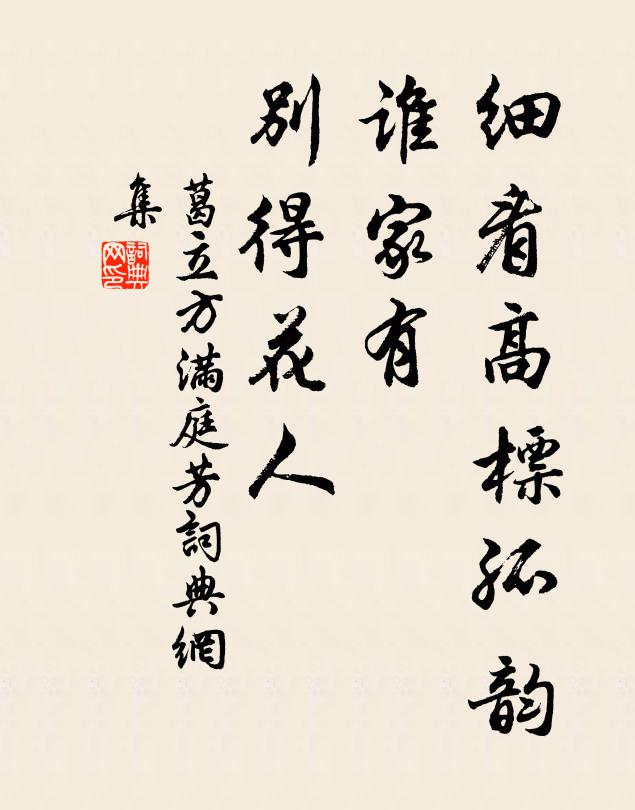 细看高標孤韵
谁家有
别得花人
葛立方满庭芳詞典網
集
詞典
网印